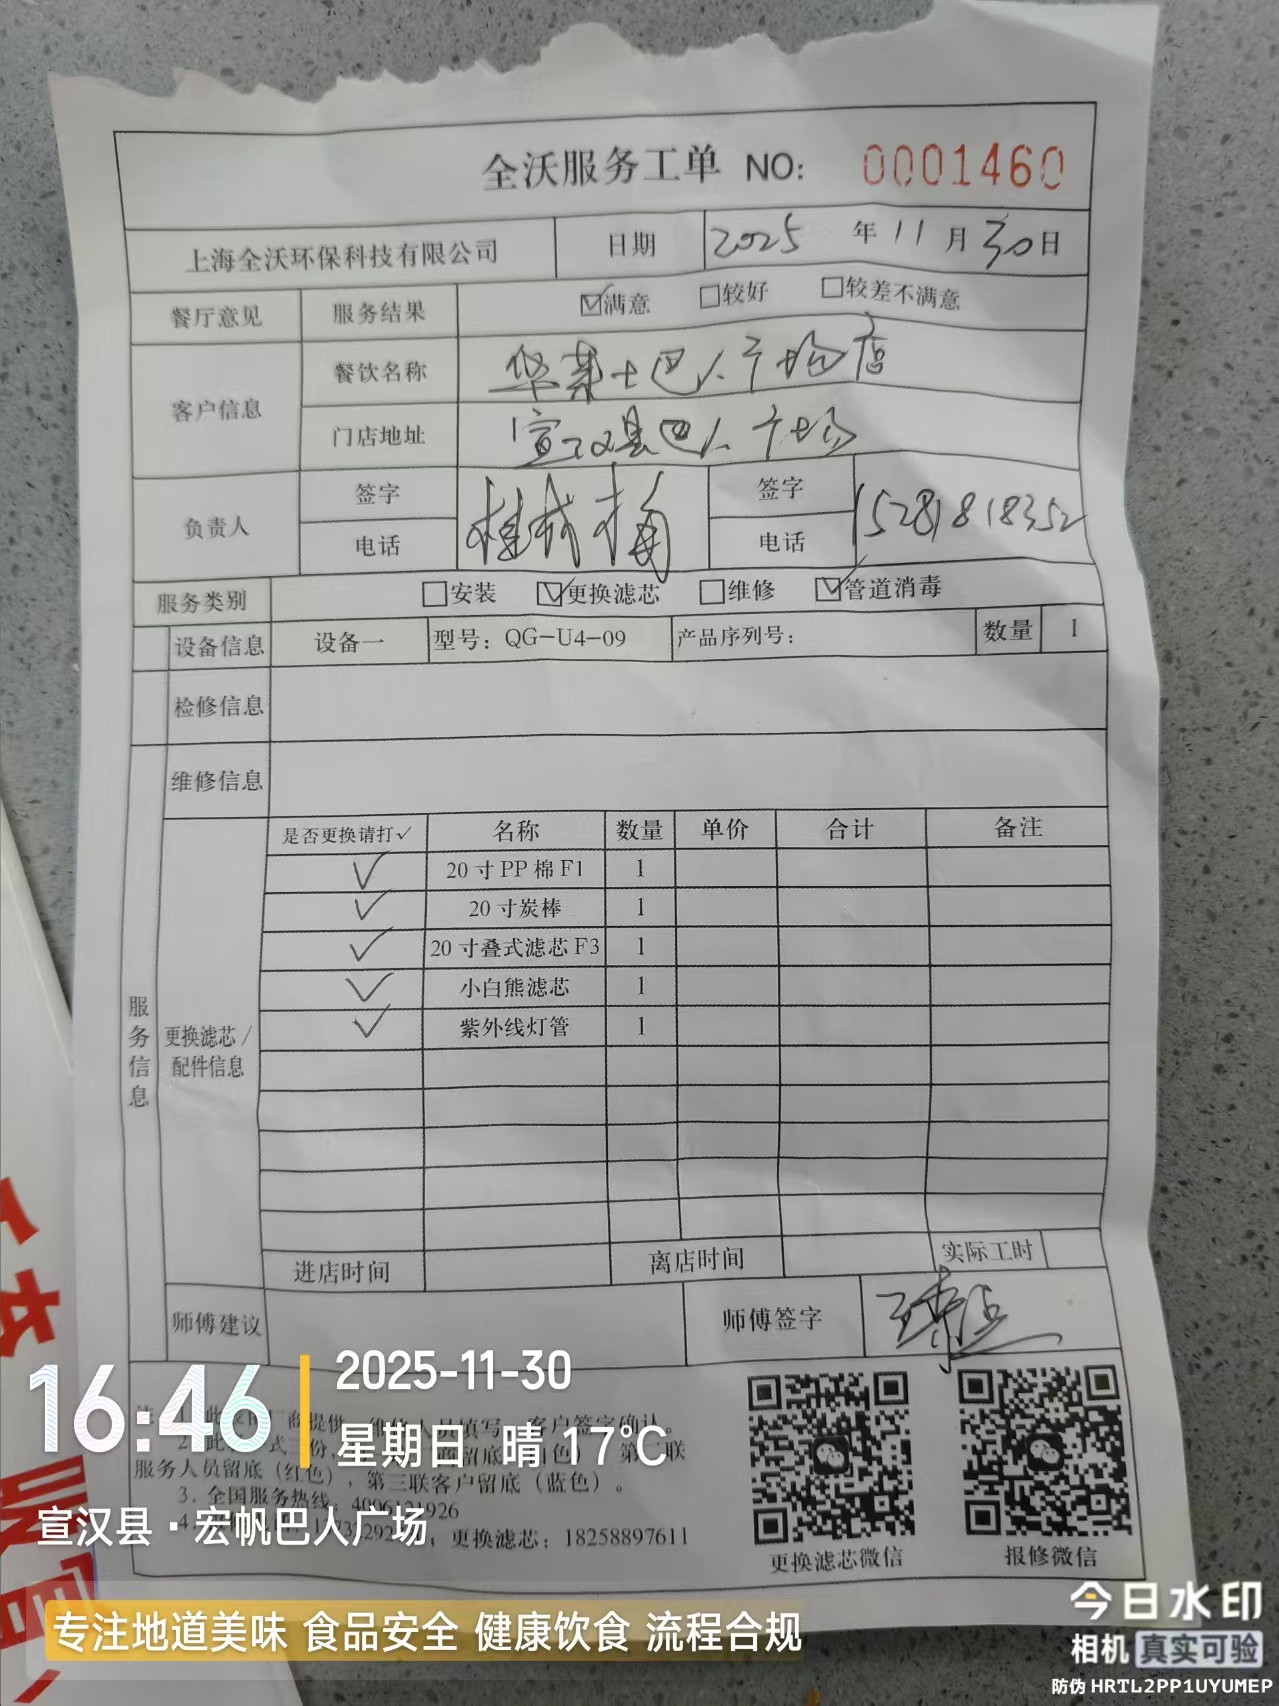 全沃服务工单 NO: 0001460
上海全沃环保科技有限公司 日期 2025 年 11 月 30 日
餐厅意见 服务结果 ☑满意 □较好 □较差不满意
客户信息 餐饮名称 华莱士巴人广场店
门店地址 宣汉县巴人广场
负责人 签字 签字
电话 电话 15281818352
服务类别 □安装 ☑更换滤芯 □维修 ☑管道消毒
设备信息 设备一 型号：QG-U4-09 产品序列号： 数量 1
检修信息
维修信息
服务信息
更换滤芯/
配件信息
是否更换请打✓ 名称 数量 单价 合计 备注
✓ 20寸PP棉F1 1
✓ 20寸炭棒 1
✓ 20寸叠式滤芯F3 1
✓ 小白熊滤芯 1
✓ 紫外线灯管 1
进店时间 离店时间 实际工时
师傅建议 师傅签字
维修人员填写，客户签字确认。
服务人员留底（红色），第三联客户留底（蓝色）。
3. 全国服务热线：
更换滤芯：18258897611
更换滤芯微信 报修微信
16:46 2025-11-30
星期日 晴 17℃
宣汉县·宏帆巴人广场
专注地道美味 食品安全 健康饮食 流程合规
今日水印
相机 真实可验
防伪 HRTL2PP1UYUMEP